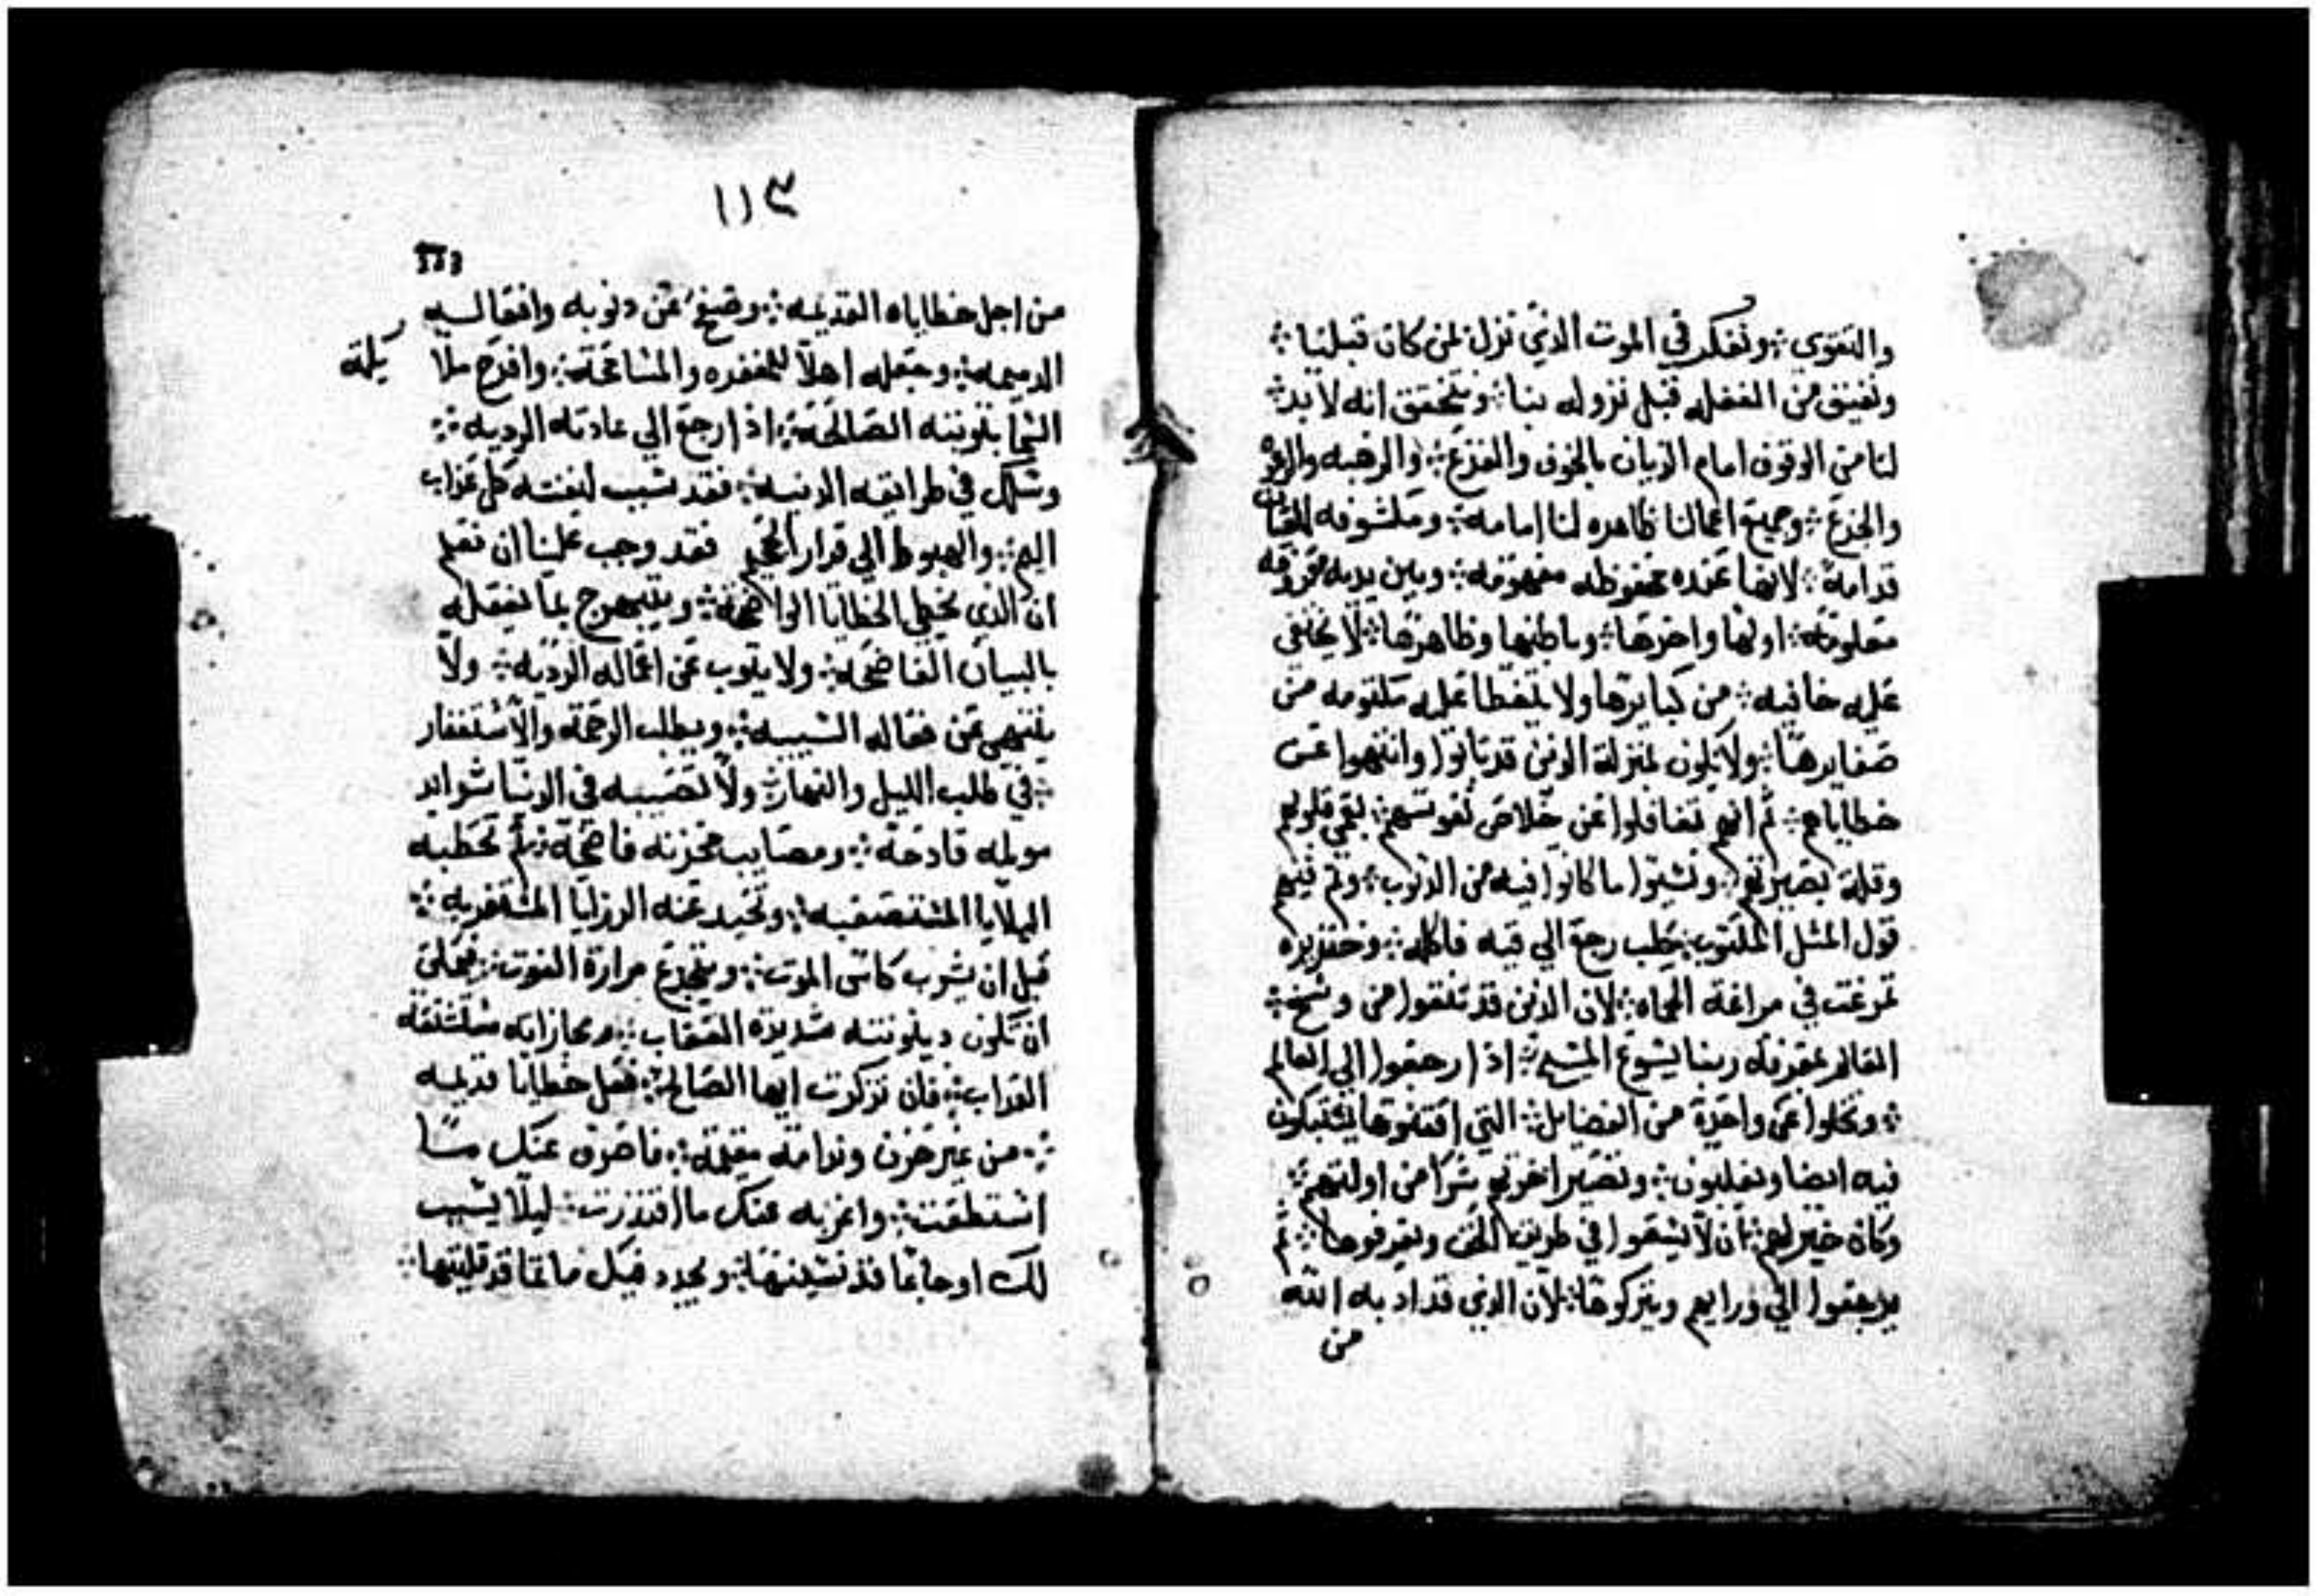 والتقوي ∴ ونفكر في الموت الذي نزل لمن كان قبلنا ∴
ونفيق من الغفله قبل نزوله بنا ∴ ونتحقق انه لا بد ∴
لنا من الوقوف امام الديان بالخوف والفزع ∴ والرهبه
والجزع ∴ وجميع اعمالنا ظاهره لنا امامه ∴ ومكشوفه
قدامه ∴ لانها عنده محفوظه مفهومه ∴ وبين يديه
معلومه ∴ اولها واخرها ∴ وباطنها وظاهرها ∴ لا يختفي
عليه خافيه ∴ من كبايرها ولا يتغطا عليه مكتومه من
صغايرها ∴ ولا نكون بمنزلة الذين قد تابوا وانتهوا عن
خطاياهم ∴ ثم انهم تغافلوا عن خلاص نفوسهم ∴ بعمي قلوبهم
وقلة بصيرتهم ونسيوا ما كانوا فيه من الذنوب ∴ وتم فيهم
قول المثل المكتوب ∴ كلب رجع الي قيه فاكله ∴ وخنزيره
تمرغت في مراغة الحماه ∴ لان الذين قد تنقوا من وسخ ∴
العالم بمعرفة ربنا يسوع المسيح ∴ اذا رجعوا الي العالم
∴ وتخلوا عن واحدة من الفضايل ∴ التي اقتنوها يشتبكون
فيه ايضا ويغلبون ∴ وتصير اخرتهم شرا من اولتهم ∴
وكان خير لهم ∴ ان لا يسعوا في طريق الحق ويعرفوها ∴ ثم
يرجعوا الي ورايهم ويتركوها ∴ لان الذي قد ادبه الله
من
١١٣
من اجل خطاياه القديمه ∴ وصفح عن دنوبه وافعاله
الدميمه ∴ وجعله اهلا للمغفره والمسامحة ∴ وافرح
السما بتوبته الصالحة ∴ اذا رجع الي عادته الرديه ∴
وسلك في طرايقه الدنيه ∴ فقد سبب لنفسه كل عذاب
اليم ∴ والهبوط الي قرار الجحيم فقد وجب علينا ان نعلم
ان الذي يخطي الخطايا الواضحة ∴ ويبتهج بما يفعله
بالبيان الفاضحه ∴ ولا يتوب عن اعماله الرديه ∴ ولا
ينتهي عن فعاله ويطلب الرحمة والاستغفار
∴ في طلب الليل والنهار ∴ ولا تصيبه في الدنيا شدايد
مولمه قادحة ∴ ومصايب محزنه فاضحة ∴ ثم تحطبه
البلايا المستصعبه ∴ وتحيد عنه الرزايا
قبل ان يشرب كاس الموت ∴ ويتجرع مرارة الفوت ∴ فعلي
ان تكون دينونته شديدة العقاب ∴ ومجازاته
العداب ∴ فان تذكرت ايها الصالح ∴ فعل خطايا قديمه
∴ من غير حزن وندامة مقيمة ∴ فاصرف عنك ما
استطعت ∴ واغربه عنك ما اقتدرت ∴ ليلا يسبب
لك اوجاعا قد نسيتها ∴ ويجدد فيك